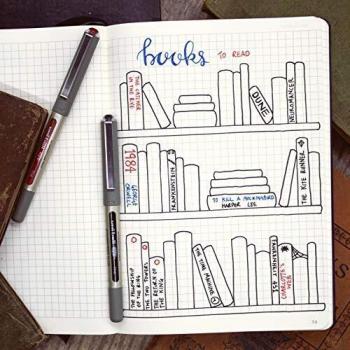 books TO READ
THE CATCHER
IN THE RYE
DUNE
NEUROMANCER
1984
GEORGE
ORWELL
FRANKENSTEIN
TO KILL A MOCKINGBIRD
HARPER LEE
THE KITE RUNNER
THE FELLOWSHIP
OF THE RING
THE TWO TOWERS
THE RETURN OF
THE KING
FAHRENHEIT 451
CHARLOTTE'S
WEB